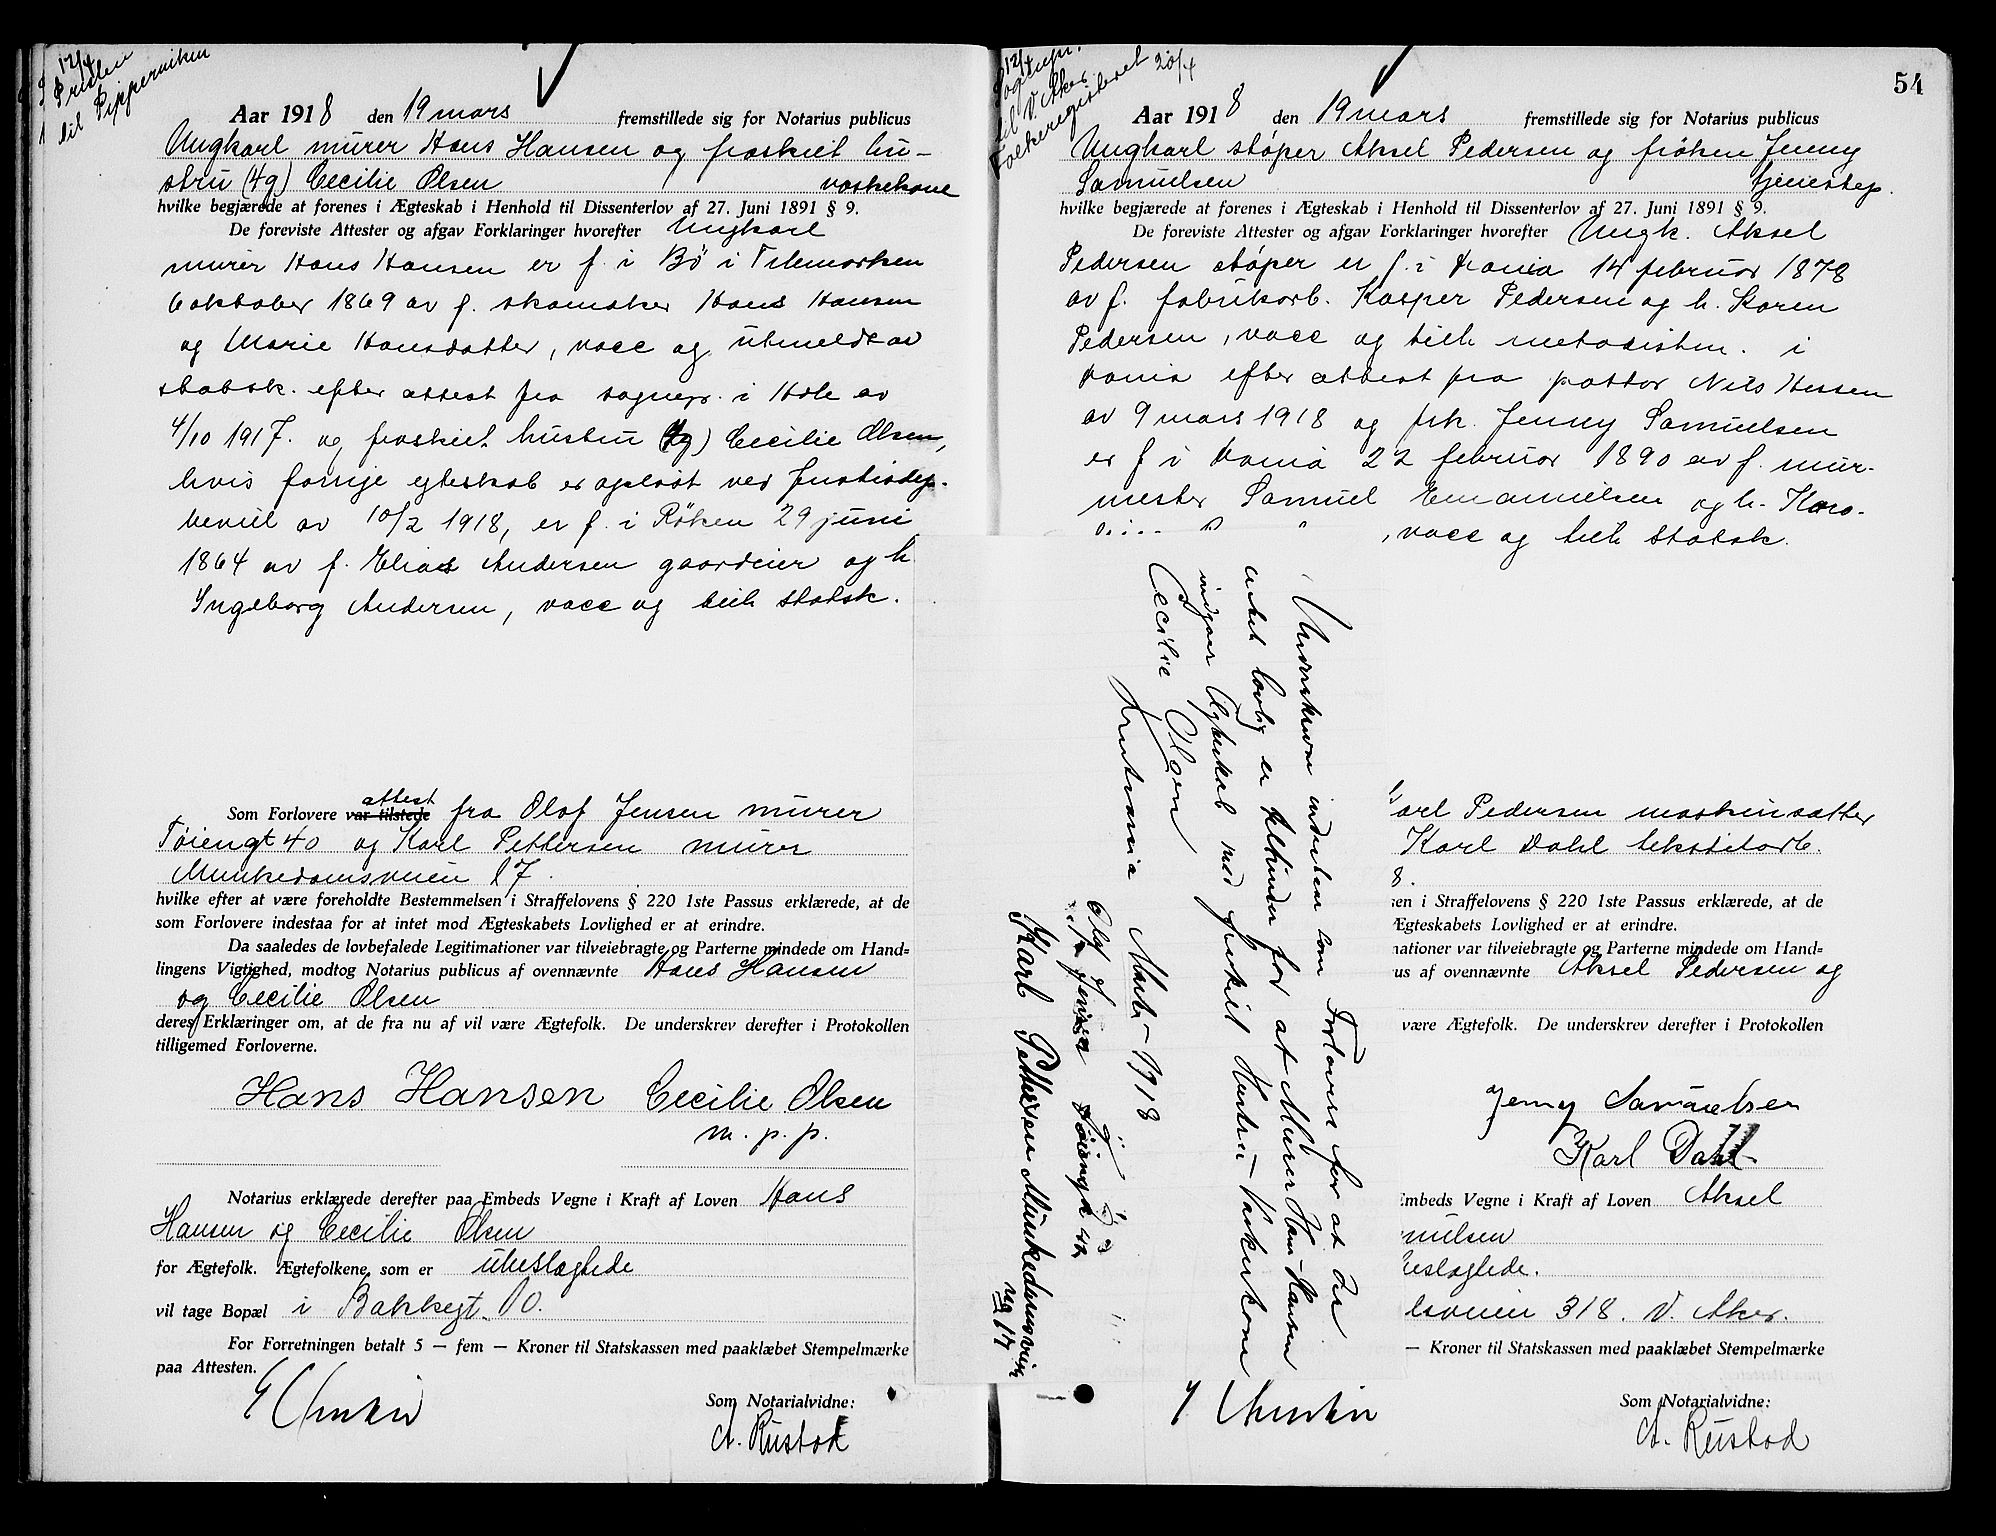 12/4
Presten
til Pipperviken
Aar 1918 den 19 mars fremstillede sig for Notarius publicus
Ungkarl murer Hans Hansen og fraskilt hu-
stru (4g) Cecilie Olsen vaskekone
hvilke begjærede at forenes i Ægteskab i Henhold til Dissenterlov af 27. Juni 1891 § 9.
De foreviste Attester og afgav Forklaringer hvorefter Ungkarl
murer Hans Hansen er f. i Bö i Telemarken
6 oktober 1869 av f. skomaker Hans Hansen
og Marie Hansdatter, vacc og utmeldt av
statsk. efter attest fra sognepr. i Hole av
4/10 1917. og fraskilt hustru (4g) Cecilie Olsen,
hvis forrige egteskab er opløst ved Justisdep.
bevill av 10/2 1918, er f. i Röken 29 juni
1864 av f. Elias Andersen gaardeier og h.
Ingeborg Andersen, vacc og tilh statsk.
Som Forlovere var tilstede attest fra Olaf Jensen murer
Töiengt 40 og Karl Pettersen murer
Munkedamsveien 17.
hvilke efter at være foreholdte Bestemmelsen i Straffelovens § 220 1ste Passus erklærede, at de
som Forlovere indestaa for at intet mod Ægteskabets Lovlighed er at erindre.
Da saaledes de lovbefalede Legitimationer var tilveiebragte og Parterne mindede om Hand-
lingens Vigtighed, modtog Notarius publicus af ovennævnte Hans Hansen
og Cecilie Olsen
deres Erklæringer om, at de fra nu af vil være Ægtefolk. De underskrev derefter i Protokollen
tilligemed Forloverne.
Hans Hansen Cecilie Olsen
m. p. p.
Notarius erklærede derefter paa Embeds Vegne i Kraft af Loven Hans
Hansen og Cecilie Olsen
for Ægtefolk. Ægtefolkene, som er ubeslægtede
vil tage Bopæl i Bakkegt. 10.
For Forretningen betalt 5 — fem — Kroner til Statskassen med paaklæbet Stempelmærke
paa Attesten.
Som Notarialvidne:
A. Rustad
54
12/4
Sognepr.
til V. Aker
Folkeregisteret 20/4
Aar 1918 den 19 mars fremstillede sig for Notarius publicus
Ungkarl støper Aksel Pedersen og fröken Jenny
Samuelsen tjenestep.
hvilke begjærede at forenes i Ægteskab i Henhold til Dissenterlov af 27. Juni 1891 § 9.
De foreviste Attester og afgav Forklaringer hvorefter Ungk. Aksel
Pedersen støper er f. i Kania 14 februar 1878
av f. fabrikarb. Kasper Pedersen og h. Karen
Pedersen, vacc og tilh metodistm. i
Kania efter attest fra pastor Nils
av 9 mars 1918 og frk. Jenny Samuelsen
er f i Kania 22 februar 1890 av f. mur-
mester Samuel Emanuelsen og h. Karo-
, vacc og tilh statsk.
Underskrevne indestaar som Forlovere for at der
intet lovlig er til hinder for at Murer Hans Hansen
indgaar Ægteskab med fraskilt Hustru - Vaskekone
Cecilie Olsen
Kristiania Marts - 1918
Olaf Jensen Töiengt 40
Karl Pettersen Munkedamsveien
no 17
Karl Pedersen maskinsætter
Karl Dahl tekstilarb.
8.
en i Straffelovens § 220 1ste Passus erklærede, at de
Ægteskabets Lovlighed er at erindre.
nationer var tilveiebragte og Parterne mindede om Hand-
us af ovennævnte Aksel Pedersen og
være Ægtefolk. De underskrev derefter i Protokollen
Jenny Samuelsen
Karl Dahl
Embeds Vegne i Kraft af Loven Aksel
muelsen
beslagtede.
lsveien 318. V. Aker.
— Kroner til Statskassen med paaklæbet Stempelmærke
Som Notarialvidne:
A. Rustad